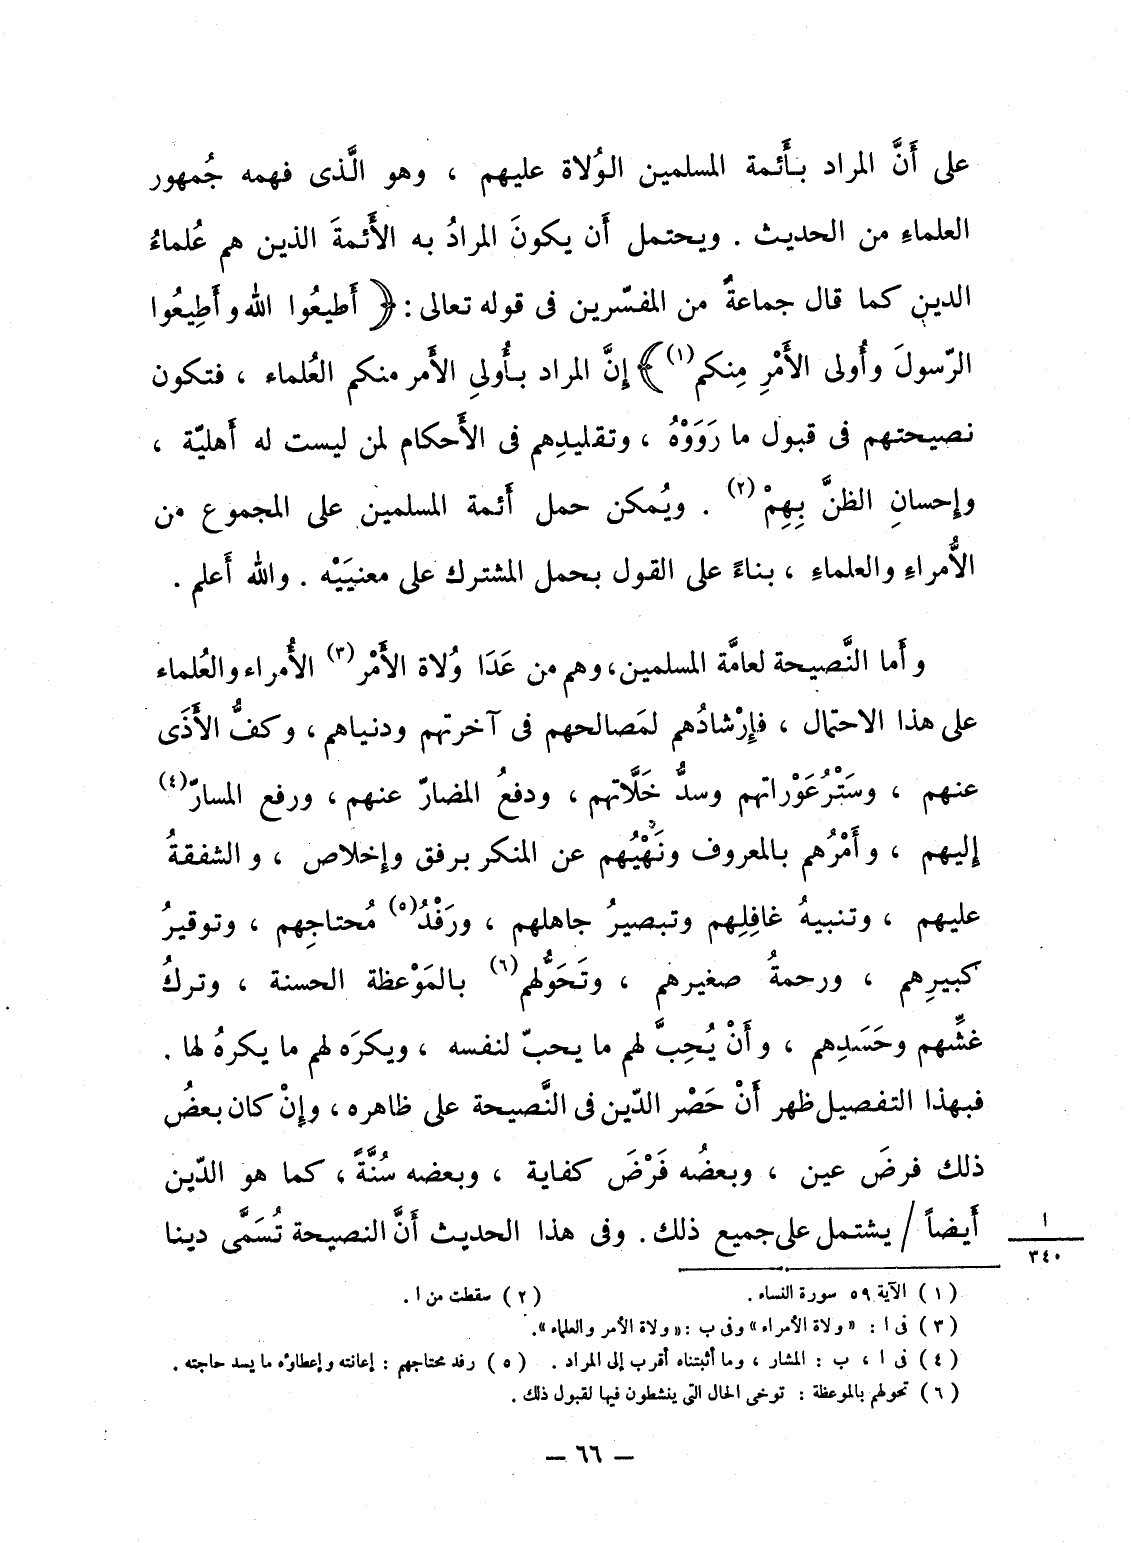 على أَنَّ المراد بأَئمة المسلمين الوُلاة عليهم ، وهو الَّذى فهمه جُمهور
العلماءِ من الحديث . ويحتمل أَن يكونَ المرادُ به الأَئمةَ الذين هم عُلماءُ
الدين كما قال جماعةٌ من المفسّرين فى قوله تعالى : ﴿ أَطيعُوا الله وأَطِيعُوا
الرّسولَ وأُولى الأَمْرِ مِنكم(١) ﴾ إنَّ المراد بأُولىِ الأَمر منكم العُلماء ، فتكون
نصيحتهم فى قبول ما رَوَوْهُ ، وتقليدِهم فى الأَحكام لمن ليست له أَهليّة ،
وإحسانِ الظنَّ بِهِمْ(٢) . ويُمكن حمل أَئمة المسلمين على المجموع من
الأُمراءِ والعلماءِ ، بناءً على القول بحمل المشترك على معنيَيْه . والله أَعلم .
وأَما النَّصيحة لعامَّة المسلمين، وهم من عَدَا وُلاة الأَمْر(٣) الأُمراء والعُلماء
على هذا الاحتمال ، فإِرْشادُهم لمَصالحهم فى آخرتهم ودنياهم ، وكفُّ الأَذَى
عنهم ، وسَتْرُ عَوْراتهم وسدُّ خَلَّاتهم ، ودفعُ المضارّ عنهم ، ورفع المسارّ(٤)
إليهم ، وأَمْرُهم بالمعروف ونَهْيُهم عن المنكر برفق وإخلاص ، والشفقةُ
عليهم ، وتنبيهُ غافِلِهم وتبصيرُ جاهلهم ، ورَفْدُ(٥) مُحتاجِهم ، وتوقيرُ
كبيرِهم ، ورحمةُ صغيرهم ، وتَحَوُّلهم(٦) بالمَوْعظة الحسنة ، وتركُ
غشِّهم وحَسَدِهم ، وأَنْ يُحِبَّ لهم ما يحبّ لنفسه ، ويكرَه لهم ما يكرهُ لها .
فبهذا التفصيل ظهر أَنْ حَصْر الدّين فى النَّصيحة على ظاهره ، وإنْ كان بعضُ
ذلك فرضَ عين ، وبعضُه فَرْضَ كفاية ، وبعضه سُنَّةً ، كما هو الدّين
أَيضاً / يشتمل على جميع ذلك . وفى هذا الحديث أَنَّ النصيحة تُسَمَّى دينا
ا
٣٤٠
(١) الآية ٥٩ سورة النساء .
(٢) سقطت من ا .
(٣) فى ا : «ولاة الأمراء» وفى ب : «ولاة الأمر والعلماء».
(٤) فى ا ، ب : المشار ، وما أثبتناه أقرب إلى المراد . (٥) رفد محتاجهم : إعانته وإعطاؤه ما يسد حاجته .
(٦) تحولهم بالموعظة : توخى الحال التى ينشطون فيها لقبول ذلك .
— ٦٦ —